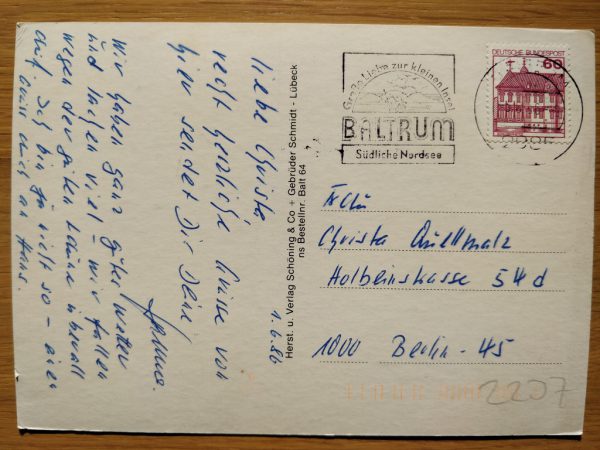 Liebe Christa
recht herzliche Grüße von
hier sendet Dir Deine
Hanna.
Wir haben ganz gutes Wetter
und lachen viel – wir fallen
wegen der guten Laune überall
auf. Ich bin ja nicht so – aber
1.6.86
Herst. u. Verlag Schöning & Co + Gebrüder Schmidt - Lübeck
ns Bestellnr. Balt 64
Große Liebe zur kleinen Insel
BALTRUM
Südliche Nordsee
DEUTSCHE BUNDESPOST
60
Frau
Christa Quellmalz
Holbeinstrasse 54 d
1000 Berlin - 45
2207